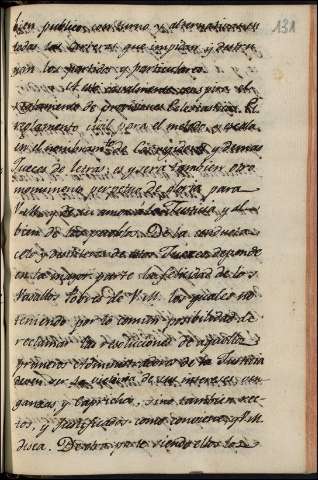 131
bien publico con turno y alternativa en
todas las carreras que impidan y destru
yan los partidos y particulares.
El
reglamento de provisiones Eclesiasticas, El
reglamento civil para el metodo y escala
en el nombramto. de Corregidores y demas
Jueces de letras es y sera tambien otro
monumento perpetuo de gloria para
V. M. y de su amor a la Justicia y al
bien de los pueblos. De la conducta
celo y de estos Jueces depende
en la mayor parte la felicidad de los
Vasallos pobres de V. M. los quales no
teniendo por lo comun posibilidad de
reclamar las resoluciones de aquellos
primeros Administradores de la Justicia
deven ser la victima de sus intereses, ven
ganzas y caprichos, sino tambien rec
tos, y justificados como conviene y V. M.
desea. De otra parte siendo ellos los